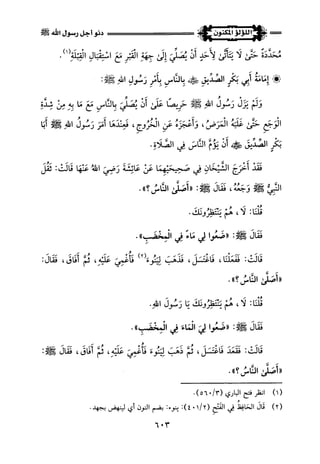 دنو أجل رسول الله ﷺ
اللؤلؤ المكنون
مُحَدَّدَةٌ حَتَّى لَا يَتَأَتَّى لِأَحَدٍ أَنْ يُصَلِّيَ إِلَى جِهَةِ الْقَبْرِ مَعَ اسْتِقْبَالِ الْقِبْلَةِ(١).
إِمَامَةُ أَبِي بَكْرٍ الصِّدِّيقِ ﷺ بِالنَّاسِ بِأَمْرِ رَسُولِ اللهِ ﷺ:
وَلَمْ يَزَلْ رَسُولُ اللهِ ﷺ حَرِيصًا عَلَى أَنْ يُصَلِّيَ بِالنَّاسِ مَعَ مَا بِهِ مِنْ شِدَّةِ
الْوَجَعِ حَتَّى غَلَبَهُ الْمَرَضُ، وَأَعْجَزَهُ عَنِ الْخُرُوجِ، فَعِنْدَهَا أَمَرَ رَسُولُ اللهِ ﷺ أَبَا
بَكْرٍ الصِّدِّيقَ ﷺ أَنْ يَؤُمَّ النَّاسَ فِي الصَّلَاةِ.
فَقَدْ أَخْرَجَ الشَّيْخَانِ فِي صَحِيحَيْهِمَا عَنْ عَائِشَةَ رَضِيَ اللهُ عَنْهَا قَالَتْ: ثَقُلَ
النَّبِيُّ ﷺ وَجَعُهُ، فَقَالَ ﷺ: «أَصَلَّى النَّاسُ؟».
قُلْنَا: لَا، هُمْ يَنْتَظِرُونَكَ.
فَقَالَ ﷺ: «ضَعُوا لِي مَاءً فِي الْمِخْضَبِ».
قَالَتْ: فَفَعَلْنَا، فَاغْتَسَلَ، فَذَهَبَ لِيَنُوءَ(٢) فَأُغْمِيَ عَلَيْهِ، ثُمَّ أَفَاقَ، فَقَالَ:
«أَصَلَّى النَّاسُ؟».
قُلْنَا: لَا، هُمْ يَنْتَظِرُونَكَ يَا رَسُولَ اللهِ.
فَقَالَ ﷺ: «ضَعُوا لِيَ الْمَاءَ فِي الْمِخْضَبِ».
قَالَتْ: فَقَعَدَ فَاغْتَسَلَ، ثُمَّ ذَهَبَ لِيَنُوءَ فَأُغْمِيَ عَلَيْهِ، ثُمَّ أَفَاقَ، فَقَالَ ﷺ:
«أَصَلَّى النَّاسُ؟».
(١) انظر فتح الباري (٥٦٠/٣).
(٢) قَالَ الْحَافِظُ فِي الْفَتْحِ (٤٠١/٢): ينوء: بضم النون أي لينهض بجهد.
٦٠٣